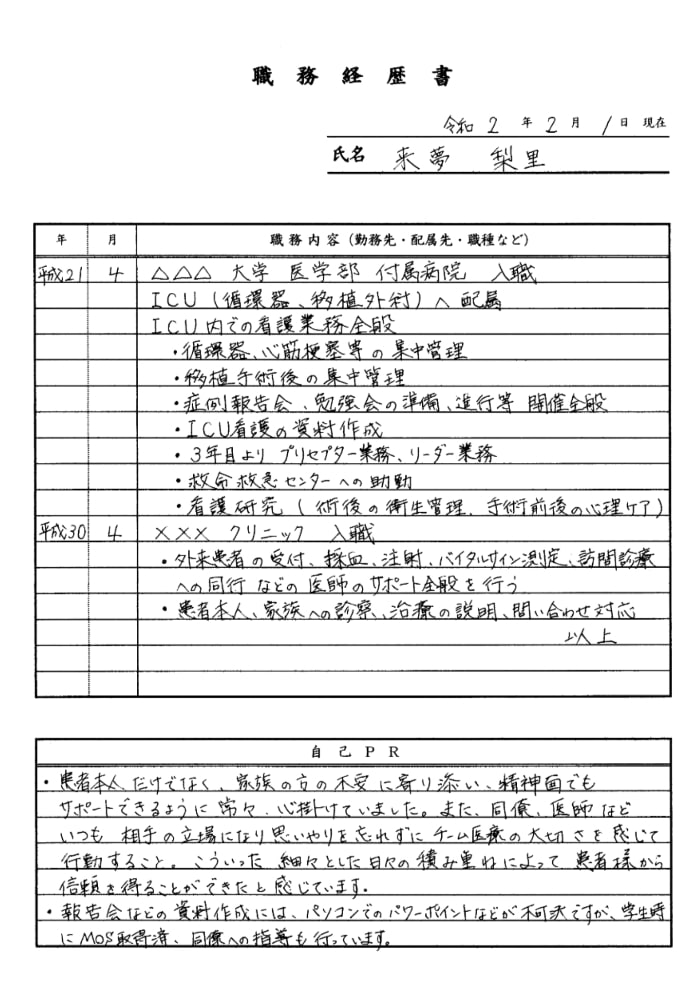 職務経歴書
令和 2 年 2 月 1 日 現在
氏名 来夢 梨里
年 月 職務内容（勤務先・配属先・職種など）
平成21 4 △△△ 大学 医学部 付属病院 入職
ICU（循環器、移植外科）へ配属
ICU内での看護業務全般
・循環器、心筋梗塞等の集中管理
・移植手術後の集中管理
・症例報告会、勉強会の準備、進行等 開催全般
・ICU看護の資料作成
・3年目より プリセプター業務、リーダー業務
・救命救急センターへの助勤
・看護研究（術後の衛生管理、手術前後の心理ケア）
平成30 4 ××× クリニック 入職
・外来患者の受付、採血、注射、バイタルサイン測定、訪問診療
への同行などの医師のサポート全般を行う
・患者本人、家族への診察、治療の説明、問い合わせ対応
以上
自己PR
・患者本人だけでなく、家族の方の不安に寄り添い、精神面でも
サポートできるように常々、心掛けていました。また、同僚、医師など
いつも相手の立場になり思いやりを忘れずにチーム医療の大切さを感じて
行動すること。こういった細々とした日々の積み重ねによって患者様から
信頼を得ることができたと感じています。
・報告会などの資料作成には、パソコンでのパワーポイントなどが不可決ですが、学生時
にMOS取得済、同僚への指導も行っています。